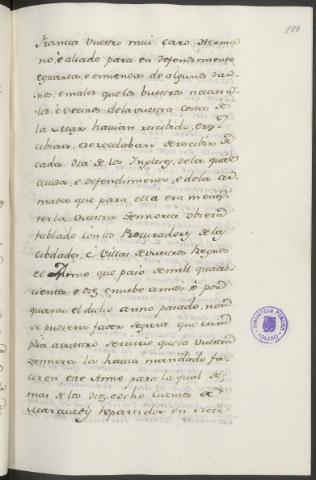 Francia vuestro mui caro Herma
no, è aliado para en defendimiento
è guarda, è emienda de algunos dan
nos, è males que los vuestros naturales
è vecinos de la vuestra costa de
la Mar havian recibido, è re
cibian, è se recelaban de recibir de
cada dia de los Ingleses, de la qual
ciuda, è defendimiento, è de la ar
mada que para ella era menes
ter la vuestra Sennoria obiera
fablado con los Procuradores de las
Cibdades, è Villas de vuestros Regnos
el Anno que pasó de mil quatro
cientos è diez enuebe annos è por
quanto el dicho anno pasado non
se pusieron facer segunt que cum
plia a vuestro servicio que la vuestra
Sennoria la havia mandado fa
cer en este Anno para la qual de
mas de los diez è ocho cuentos de
Maravedis repartidos en
190
BIBLIOTECA PUBLICA
TOLEDO